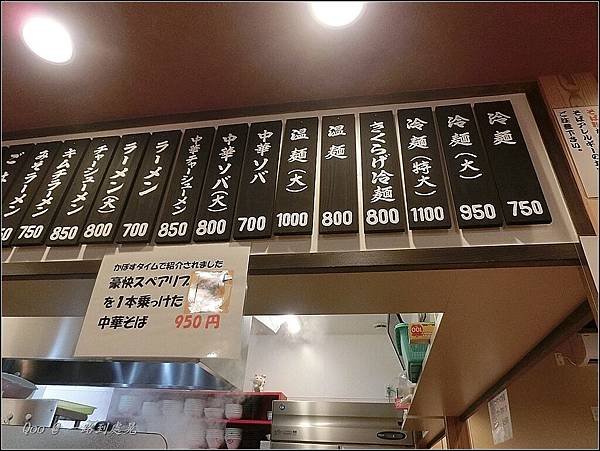 冷麺
750
冷麺(大)
950
冷麺(特大)
1100
きくらげ冷麺
800
温麺
800
温麺(大)
1000
中華ソバ
700
中華ソバ(大)
800
中華チャーシューメン
850
ラーメン
700
ラーメン(大)
800
チャーシューメン
850
キムチラーメン
850
みそラーメン
750
ごは
50
かぼすタイムで紹介されました
豪快スペアリブ
を1本乗っけた
中華そば 950円
100